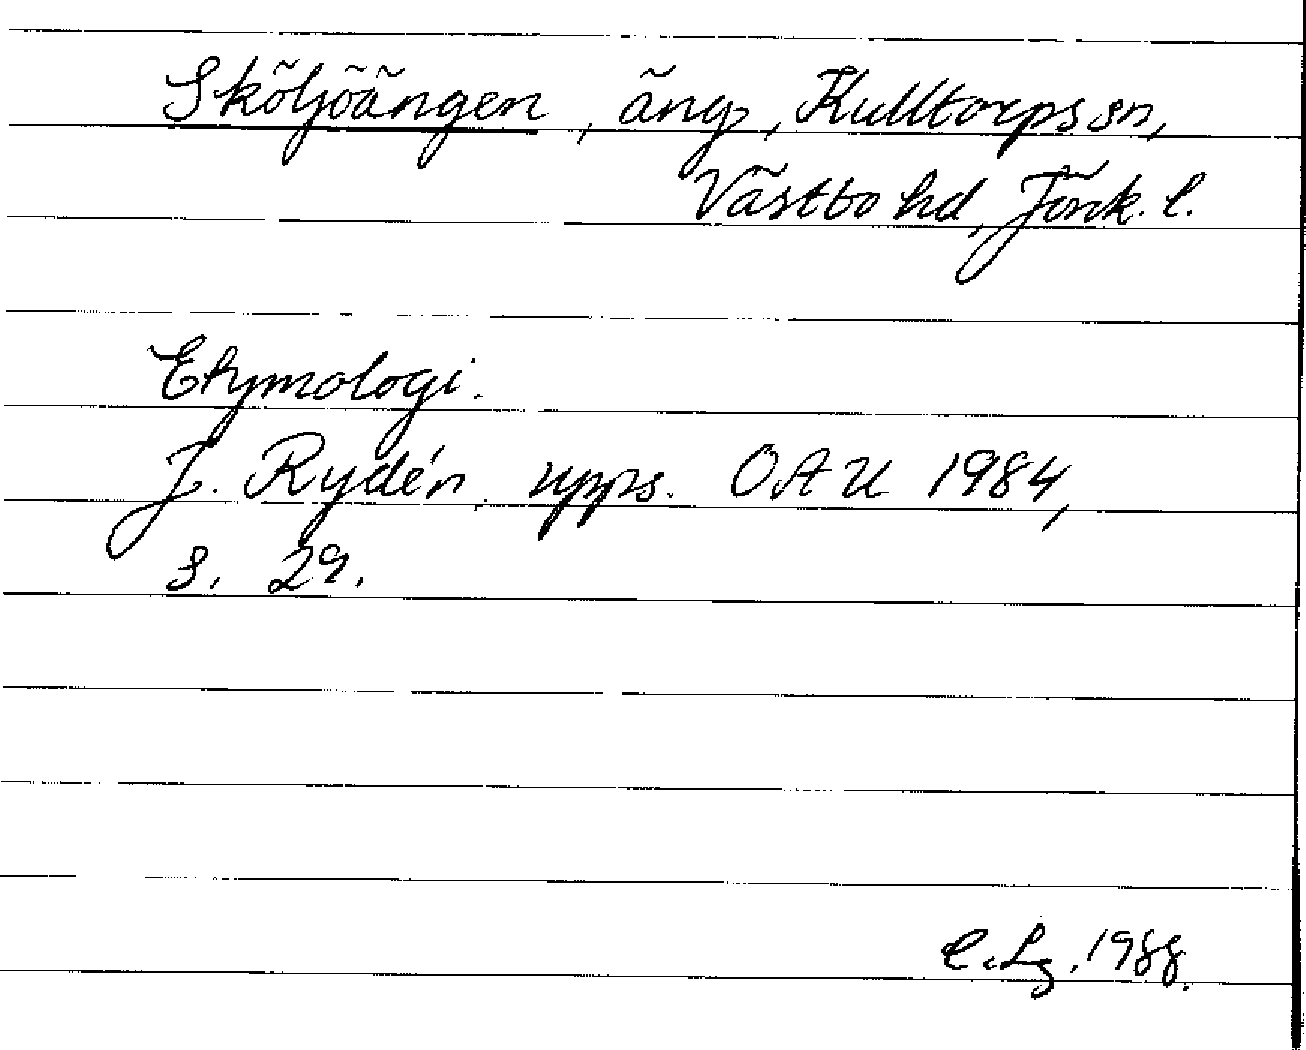 Sköljöängen, äng, Kulltorps sn,
Västbo hd, Jönk. l.
Etymologi.
J. Rydén, upps. OAU 1984,
s. 29.
C. Lg. 1988.